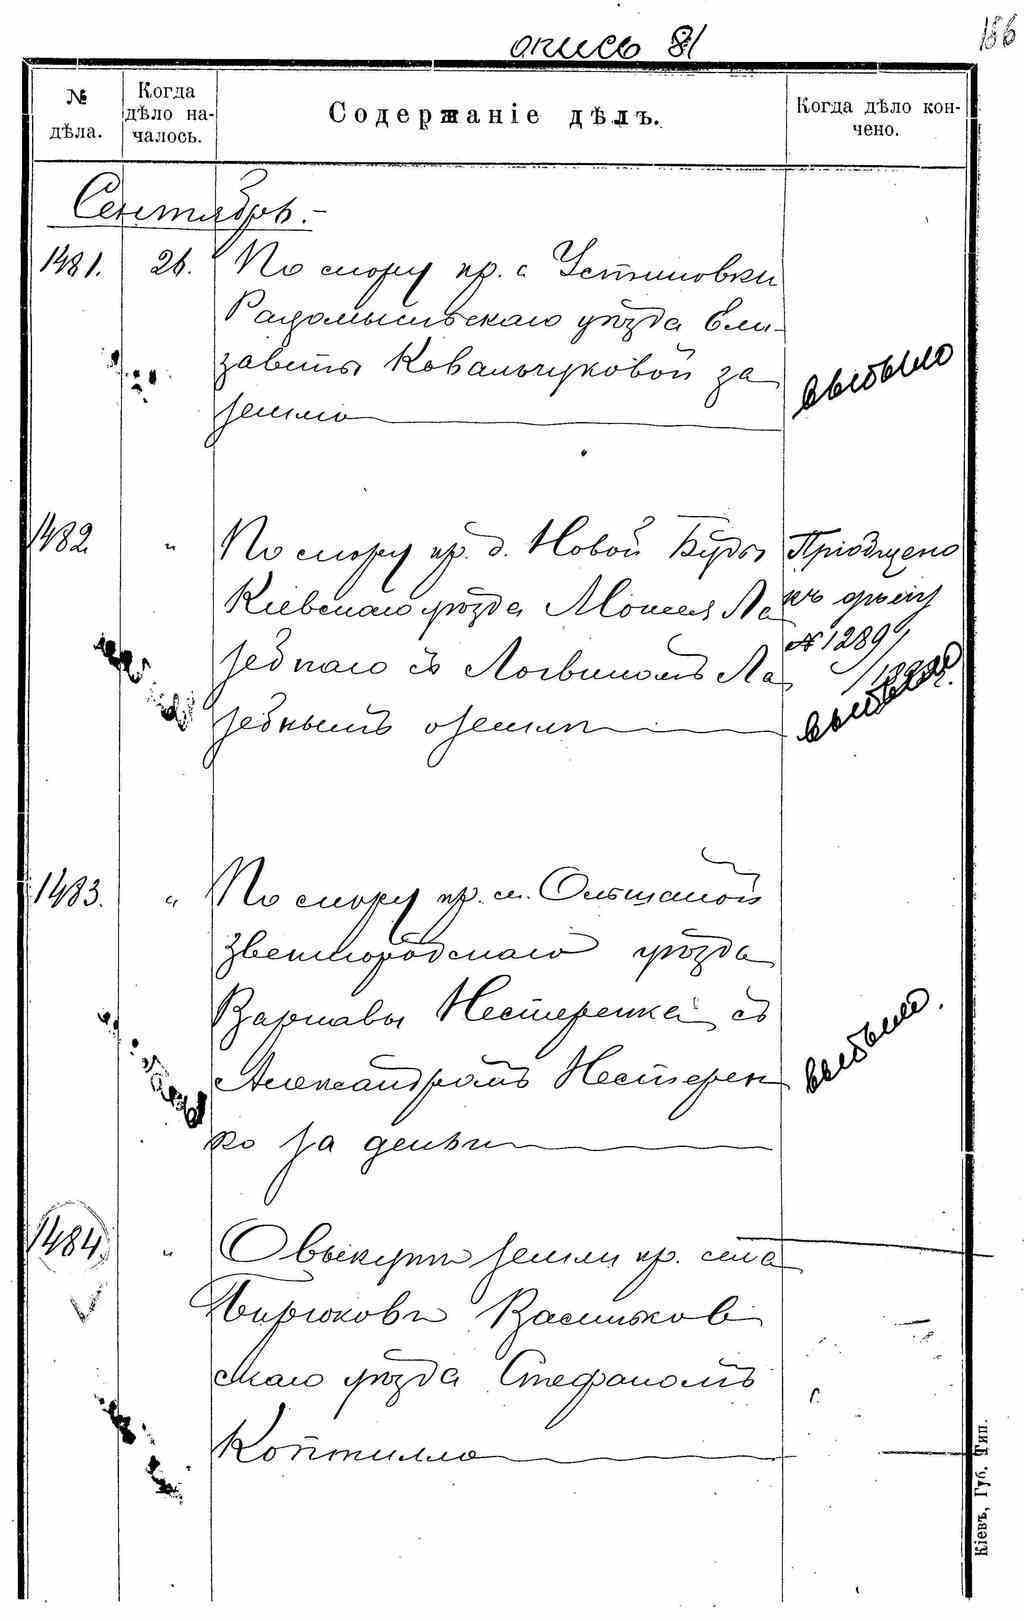 опись 81
186
№ дѣла.
Когда дѣло началось.
Содержаніе дѣлъ.
Когда дѣло кончено.
Сентябрь.-
1481.
26.
По спору кр. с. Устиновки
Радомысльскаго уѣзда Ели-
заветы Ковальчуковой за
землю
выбыло
1482.
"
По спору кр. д. Новой Буды
Кіевскаго уѣзда Моисея Ла
зебнаго съ Логвиномъ Ла
зебнымъ о землѣ
Пріобщено
къ дѣлу
№ 1289
выбыло
1483.
"
По спору кр. м. Ольшаной
Звенигородскаго уѣзда
Варнавы Нестеренка съ
Александромъ Нестерен
ко за деньги
выбыло.
1484.
"
О выкупѣ земли кр. села
Бирюковъ Васильков
скаго уѣзда Стефаномъ
Коптилло
Кіевъ, Губ. Тип.